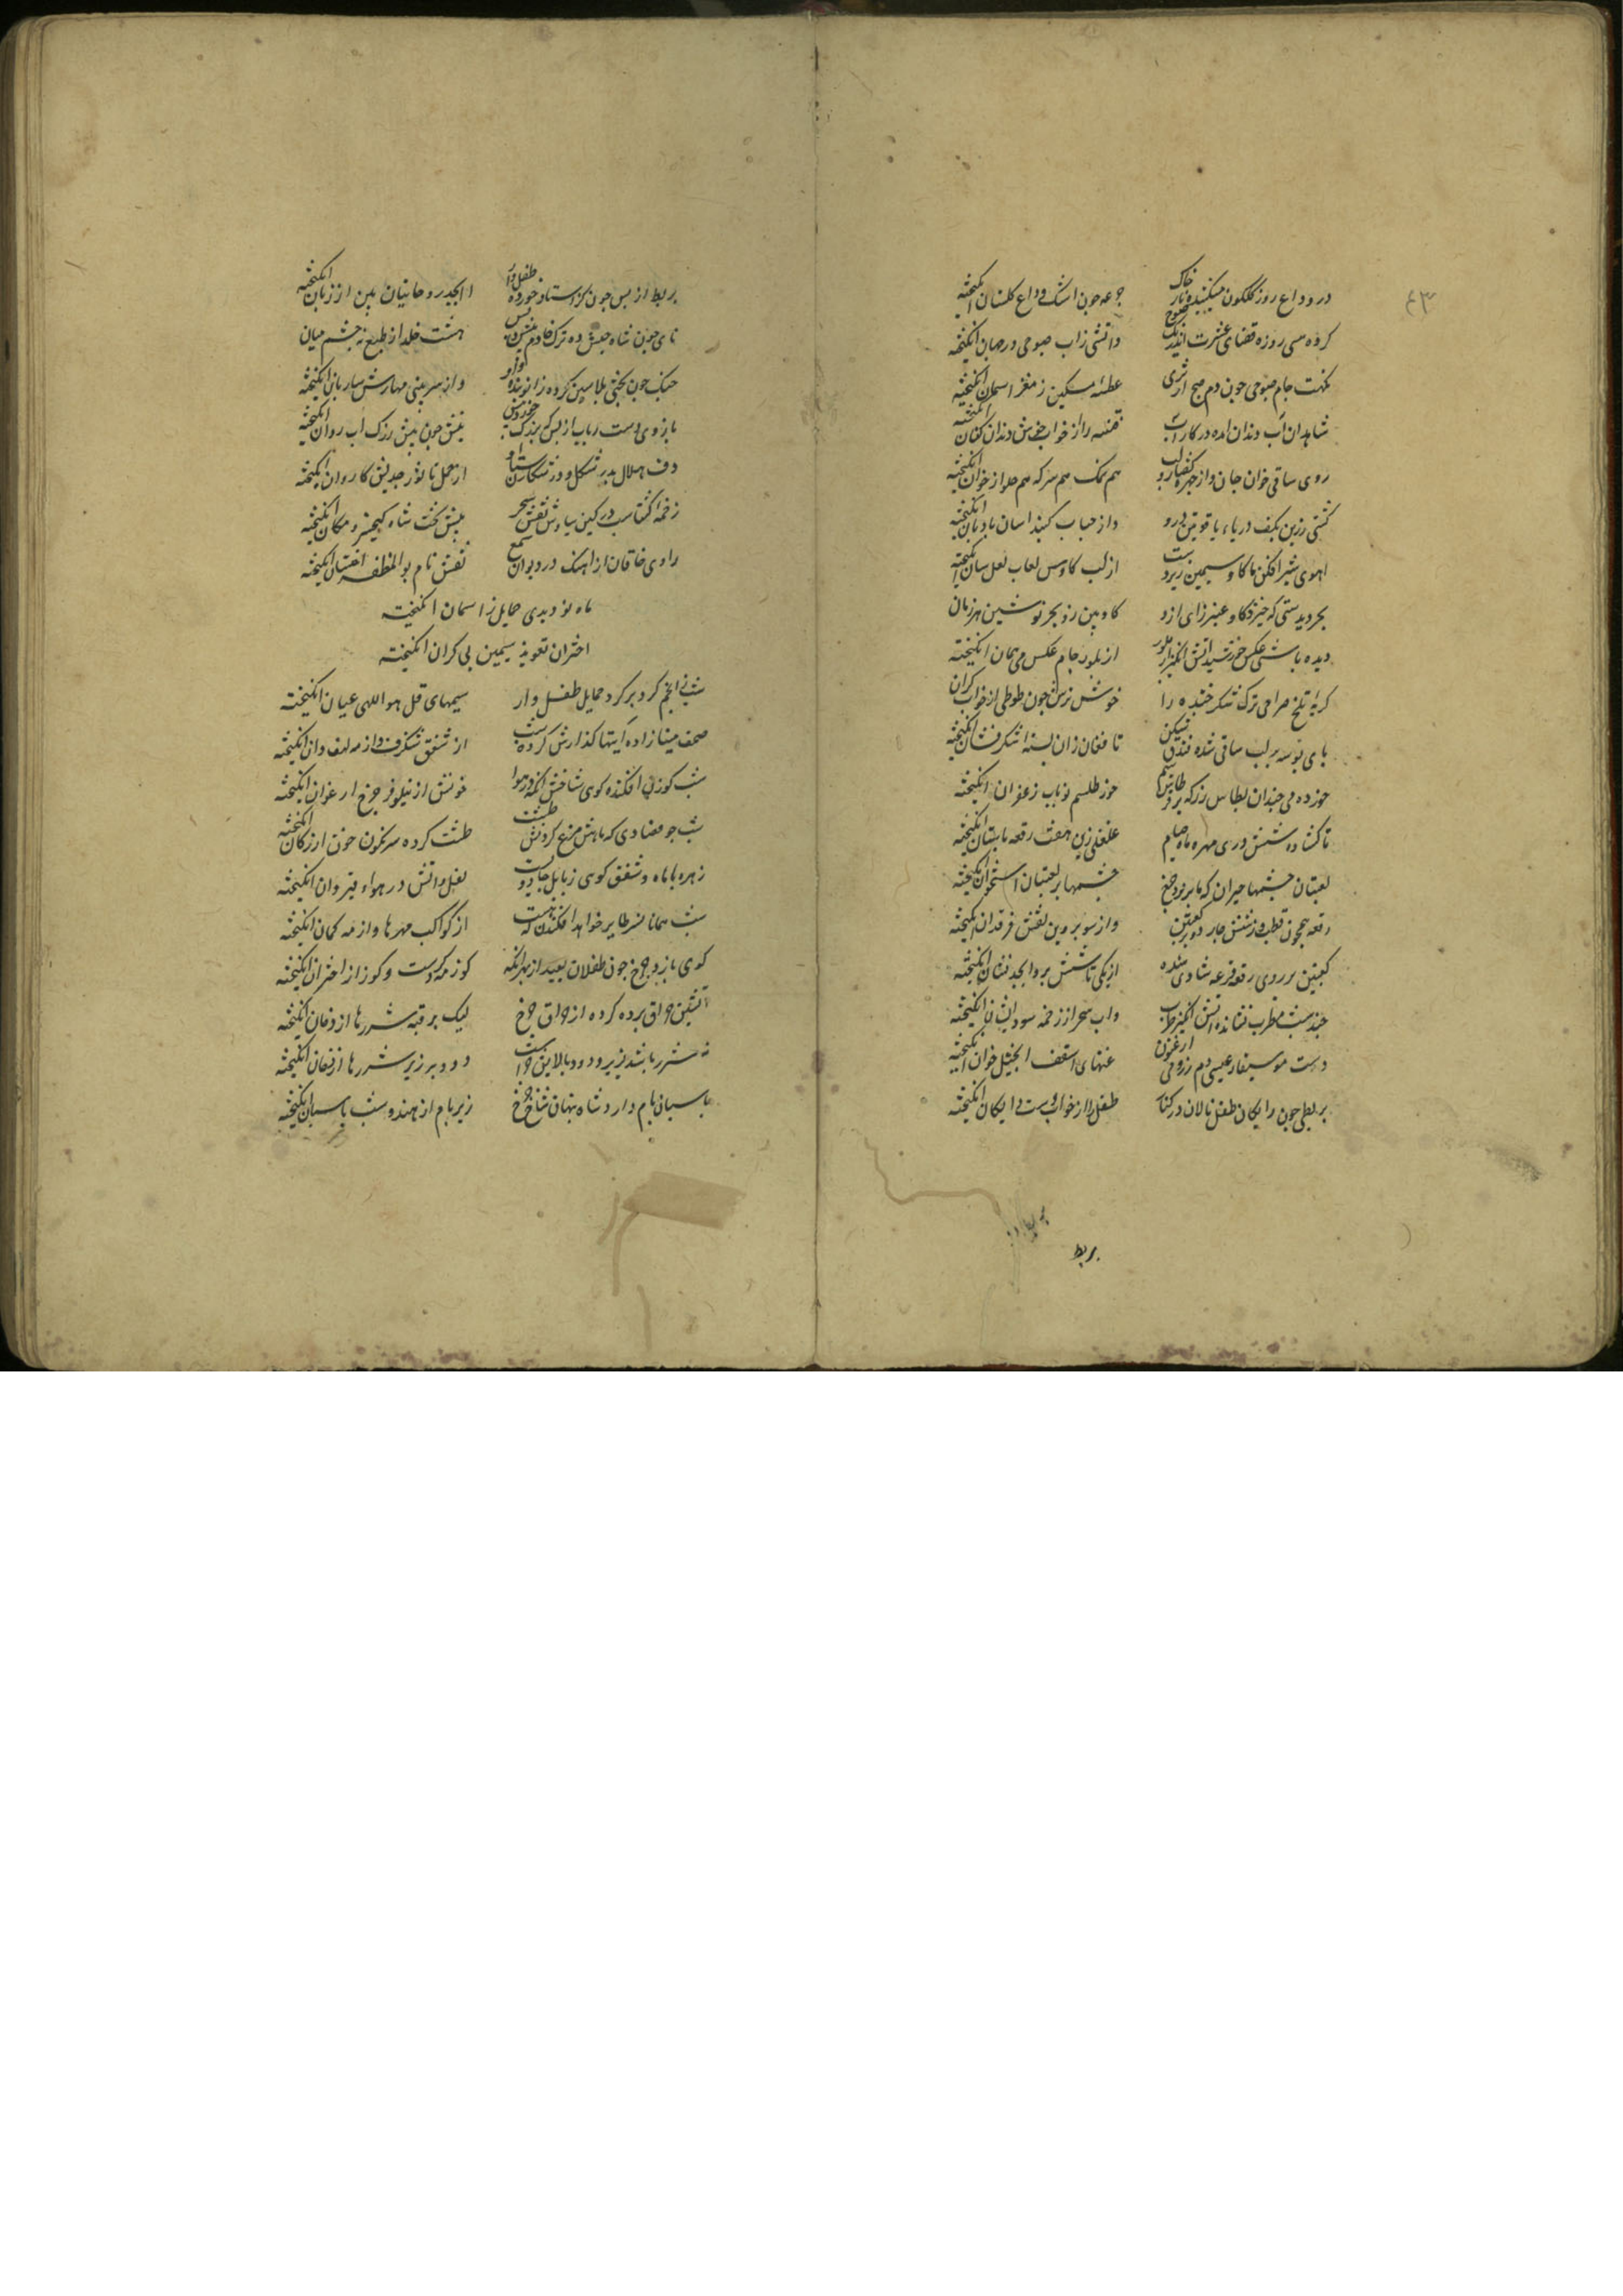 ٤٣
در وداع روز کلکون میکنند بر خاک جرعه چون اشک وداع کلستان انکیخته
کرده سی روزه قضای عشرت اندر یک صبوح واتشی زاب صبوحی در جهان انکیخته
نکهت جام صبوحی جون دم صبح از تری عطسه مشکین ز مغز اسمان انکیخته
شاهدان آب دندان امده در کار آب فتنه را از خواب خوش دندان کنان انکیخته
روی ساقی خوان جان واز چهره و کفتار لب هم نمک هم سرکه هم حلوا ز خوان انکیخته
کشتی زرین بکف دریاء یاقوتین درو واز حباب کنبد اسان بادبان انکیخته
اهوی شیر افکن ما کاو سیمین زیر دست از لب کاوس لعاب لعل سان انکیخته
بحر دیدستی که خیزد کاو عنبر زای ازو کاو بین زو بحر نوشین هر زمان
دیده باشی عکس خورشید اتش انکیز از بلور از بلور جام عکس می همان انکیخته
کریه تلخ صراحی ترک شکر خنده را خوش ترش جون طوطی از خواب کران
پای بوسه بر لب ساقی شده فندق شکن تا فغان زان پسته شکر فشان انکیخته
خورده می جندان بطاس زر که بر
تا کشاده شش دری مهره ماه صیام غلغلی زین هفت رقعه باستان انکیخته
لعبتان جشمها حیران که ما بر نرد جرخ جشمها بر لعبتان استخوان انکیخته
رقعه همچون قطب وز شش جار دو بر کعبتین واز سو بروین نقش فرقدان انکیخته
کعبتین بر روی رقعه قرعه شادی شده از یکی تا شش برو ابجد نشان انکیخته
جند سبت مطرب نشانده اتش انکیز طرب واب سحر از زخمه سودایشان انکیخته
دست موسیقار عیسی دم ز رومی ارغنون غنهای اسقف انجیل خوان انکیخته
بربطی جون دایکان طفل نالان در کنار طفل را از خواب دست دایکان انکیخته
بربط
بربط از بس جون کز استاذ خورده طفل وار ابجد روحانیان بین از زبان انکیخته
نای جون شاه حبش ده ترک خادم پیش و پس هشت خلد از طبع نه جشم میان
جنک جون بختی پلاسین کرده زانو بند او واز سر بینی مهارش ساربان انکیخته
بازوی دست رباب از بس که بر رک خورد نیش نیش جون نیش رک اب روان انکیخته
دف هلال بدر شکل و در شکارستان او از حمل تا ثور جدیش کاروان انکیخته
زخمه کشتاسب در کین سیاوش نقش سحر پیش تخت شاه کیخسرو مکان انکیخته
راوی خاقان از اهنک در دیوان سمع نقش نام بوالمظفر اخستان انکیخته
ماه نو دیدی حمایل ز اسمان انکیخته
اختران تعویذ سیمین بی کران انکیخته
شب ز انجم کرد بر کرد حمایل طفل وار سیمهای قل هو اللهی عیان انکیخته
مصحف مینا زاده ایتها کذارش کرده شب از شفق شنکرف واز مه لیقه دان انکیخته
شب کوزنی افکنده کوی شاخش انکه در هوا خونش از نیلوفر جرخ ارغوان انکیخته
شب جو فصادی که ماهش مبضع کردونش طشت طشت کرده سرنکون خون از رکان انکیخته
زهره با ماه و شفق کوی ز بابل جادوست نعل واتش در هواء قیروان انکیخته
شب همانا نسر طایر خواهد افکندن که هست از کواکب مهرها واز مه کمان انکیخته
کوی بازوجرخ جون طفلان بعید از بهر انکه کوز مه کردست و کوز از اختران انکیخته
اتشین حراق برده کرده از حراق جرخ لیک بر قبه شررها از دخان انکیخته
نه شرر باشد بزیر و دود بالا این جراست دود بر زیر شررها از فغان انکیخته
پاسبان بام دارد شاه پنهان شاخ جرخ زیر بام از هندو شب پاسبان انکیخته